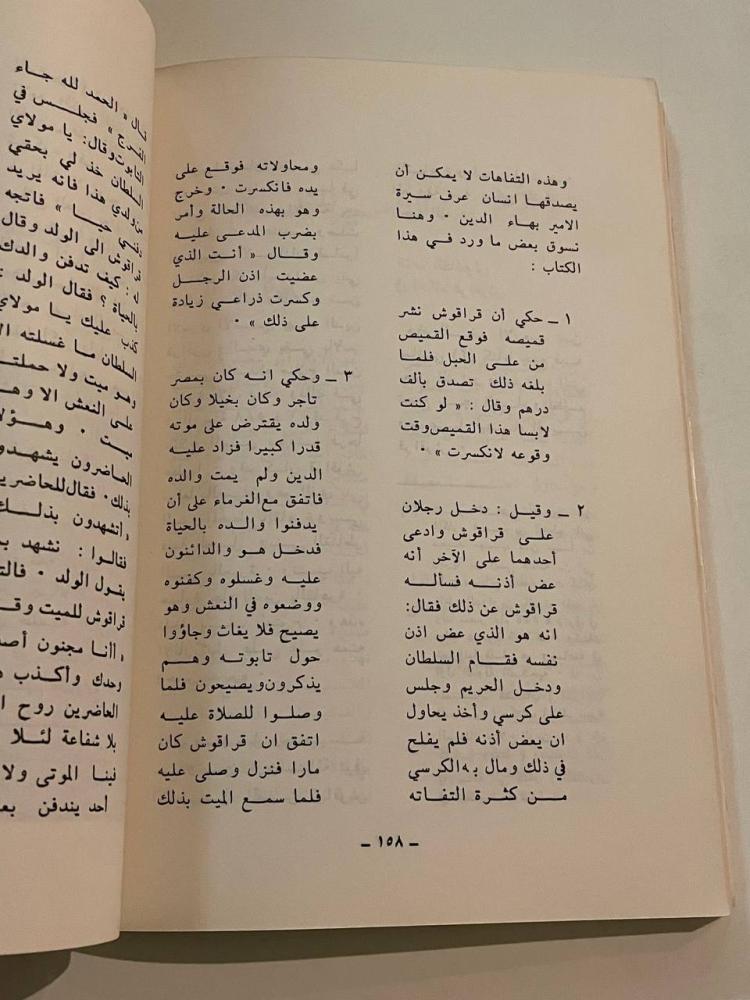 وهذه التفاهات لا يمكن أن
يصدقها انسان عرف سيرة
الامير بهاء الدين · وهنا
نسوق بعض ما ورد في هذا
الكتاب :
١ ــ حكي أن قراقوش نشر
قميصه فوقع القميص
من على الحبل فلما
بلغه ذلك تصدق بألف
درهم وقال : « لو كنت
لابسا هذا القميص وقت
وقوعه لانكسرت » ·
٢ ــ وقيل : دخل رجلان
على قراقوش وادعى
أحدهما على الآخر أنه
عض أذنه فسأله
قراقوش عن ذلك فقال:
انه هو الذي عض اذن
نفسه فقام السلطان
ودخل الحريم وجلس
على كرسي وأخذ يحاول
ان يعض أذنه فلم يفلح
في ذلك ومال به الكرسي
من كثرة التفاته
ومحاولاته فوقع على
يده فانكسرت · وخرج
وهو بهذه الحالة وأمر
بضرب المدعى عليه
وقال « أنت الذي
عضيت اذن الرجل
وكسرت ذراعي زيادة
على ذلك » ·
٣ ــ وحكي انه كان بمصر
تاجر وكان بخيلا وكان
ولده يقترض على موته
قدرا كبيرا فزاد عليه
الدين ولم يمت والده
فاتفق مع الغرماء على أن
يدفنوا والده بالحياة
فدخل هو والدائنون
عليه وغسلوه وكفنوه
ووضعوه في النعش وهو
يصيح فلا يغاث وجاؤوا
حول تابوته وهم
يذكرون ويصيحون فلما
وصلوا للصلاة عليه
اتفق ان قراقوش كان
مارا فنزل وصلى عليه
فلما سمع الميت بذلك
ــ ١٥٨ ــ
قال « الحمد لله جاء
الفرج » فجلس في
التابوت وقال: يا مولاي
السلطان خذ لي بحقي
من ولدي هذا فانه يريد
دفني حيا » فاتجه
قراقوش الى الولد وقال
له : كيف تدفن والدك
بالحياة ؟ فقال الولد :
كذب عليك يا مولاي
السلطان ما غسلته
وهو ميت ولا حملته
على النعش الا وهو
ميت · وهؤلاء
الحاضرون يشهدون
بذلك · فقال للحاضرين
« أتشهدون بذلك
فقالوا : نشهد
بقول الولد ·
قراقوش للميت
« أأنا مجنون
وحدك وأكذب
الحاضرين روح
بلا شفاعة لئلا
فينا الموتى ولا
أحد يندفن